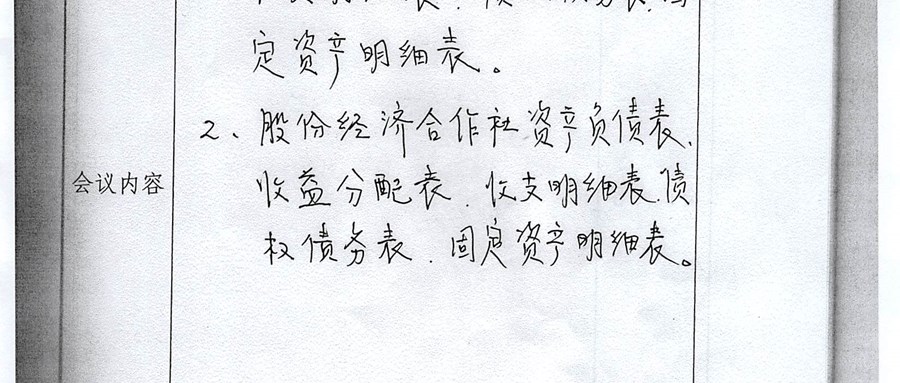 定资产明细表。
2、股份经济合作社资产负债表、
会议内容
收益分配表、收支明细表、债
权债务表、固定资产明细表。